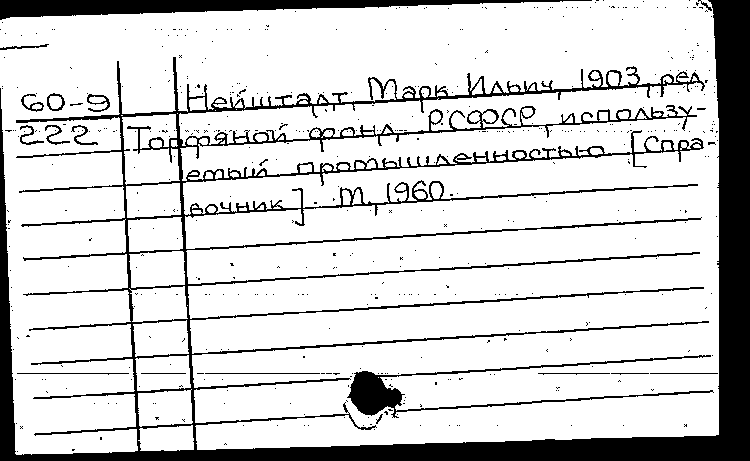 60-9 Нейштадт, Марк Ильич, 1903, ред.
222 Торфяной фонд РСФСР, использу-
емый промышленностью [Спра-
вочник]. М., 1960.